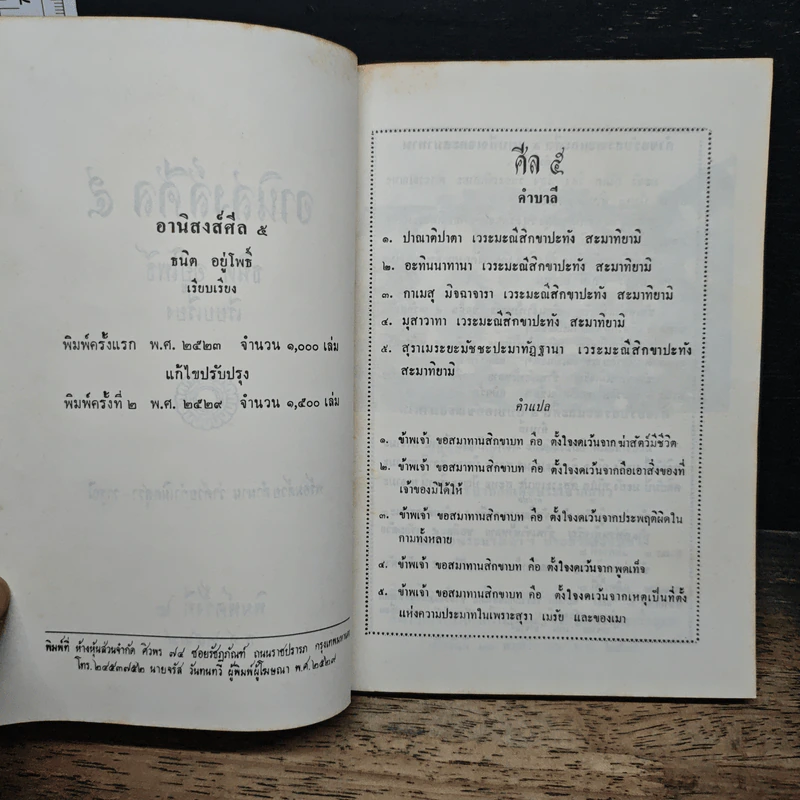 อานิสงส์ศีล ๕
ธนิต อยู่โพธิ์
เรียบเรียง
พิมพ์ครั้งแรก พ.ศ. ๒๕๒๓ จำนวน ๑,๐๐๐ เล่ม
แก้ไขปรับปรุง
พิมพ์ครั้งที่ ๒ พ.ศ. ๒๕๒๙ จำนวน ๑,๕๐๐ เล่ม
พิมพ์ที่ ห้างหุ้นส่วนจำกัด ศิวพร ๗๔ ซอยรัชฎภัณฑ์ ถนนราชปรารภ
โทร. ๒๔๕๓๗๕๒ นายจรัส วันทนทวี ผู้พิมพ์ผู้โฆษณา พ.ศ. ๒๕๒๙
ศีล ๕
คำบาลี
๑. ปาณาติปาตา เวระมะณีสิกขาปะทัง สะมาทิยามิ
๒. อะทินนาทานา เวระมะณีสิกขาปะทัง สะมาทิยามิ
๓. กาเมสุ มิจฉาจารา เวระมะณีสิกขาปะทัง สะมาทิยามิ
๔. มุสาวาทา เวระมะณีสิกขาปะทัง สะมาทิยามิ
๕. สุราเมระยะมัชชะปะมาทัฏฐานา เวระมะณีสิกขาปะทัง
สะมาทิยามิ
คำแปล
๑. ข้าพเจ้า ขอสมาทานสิกขาบท คือ ตั้งใจงดเว้นจากฆ่าสัตว์มีชีวิต
๒. ข้าพเจ้า ขอสมาทานสิกขาบท คือ ตั้งใจงดเว้นจากถือเอาสิ่งของที่
เจ้าของมิได้ให้
๓. ข้าพเจ้า ขอสมาทานสิกขาบท คือ ตั้งใจงดเว้นจากประพฤติผิดใน
กามทั้งหลาย
๔. ข้าพเจ้า ขอสมาทานสิกขาบท คือ ตั้งใจงดเว้นจากพูดเท็จ
๕. ข้าพเจ้า ขอสมาทานสิกขาบท คือ ตั้งใจงดเว้นจากเหตุเป็นที่ตั้ง
แห่งความประมาทในเพราะสุรา เมรัย และของเมา